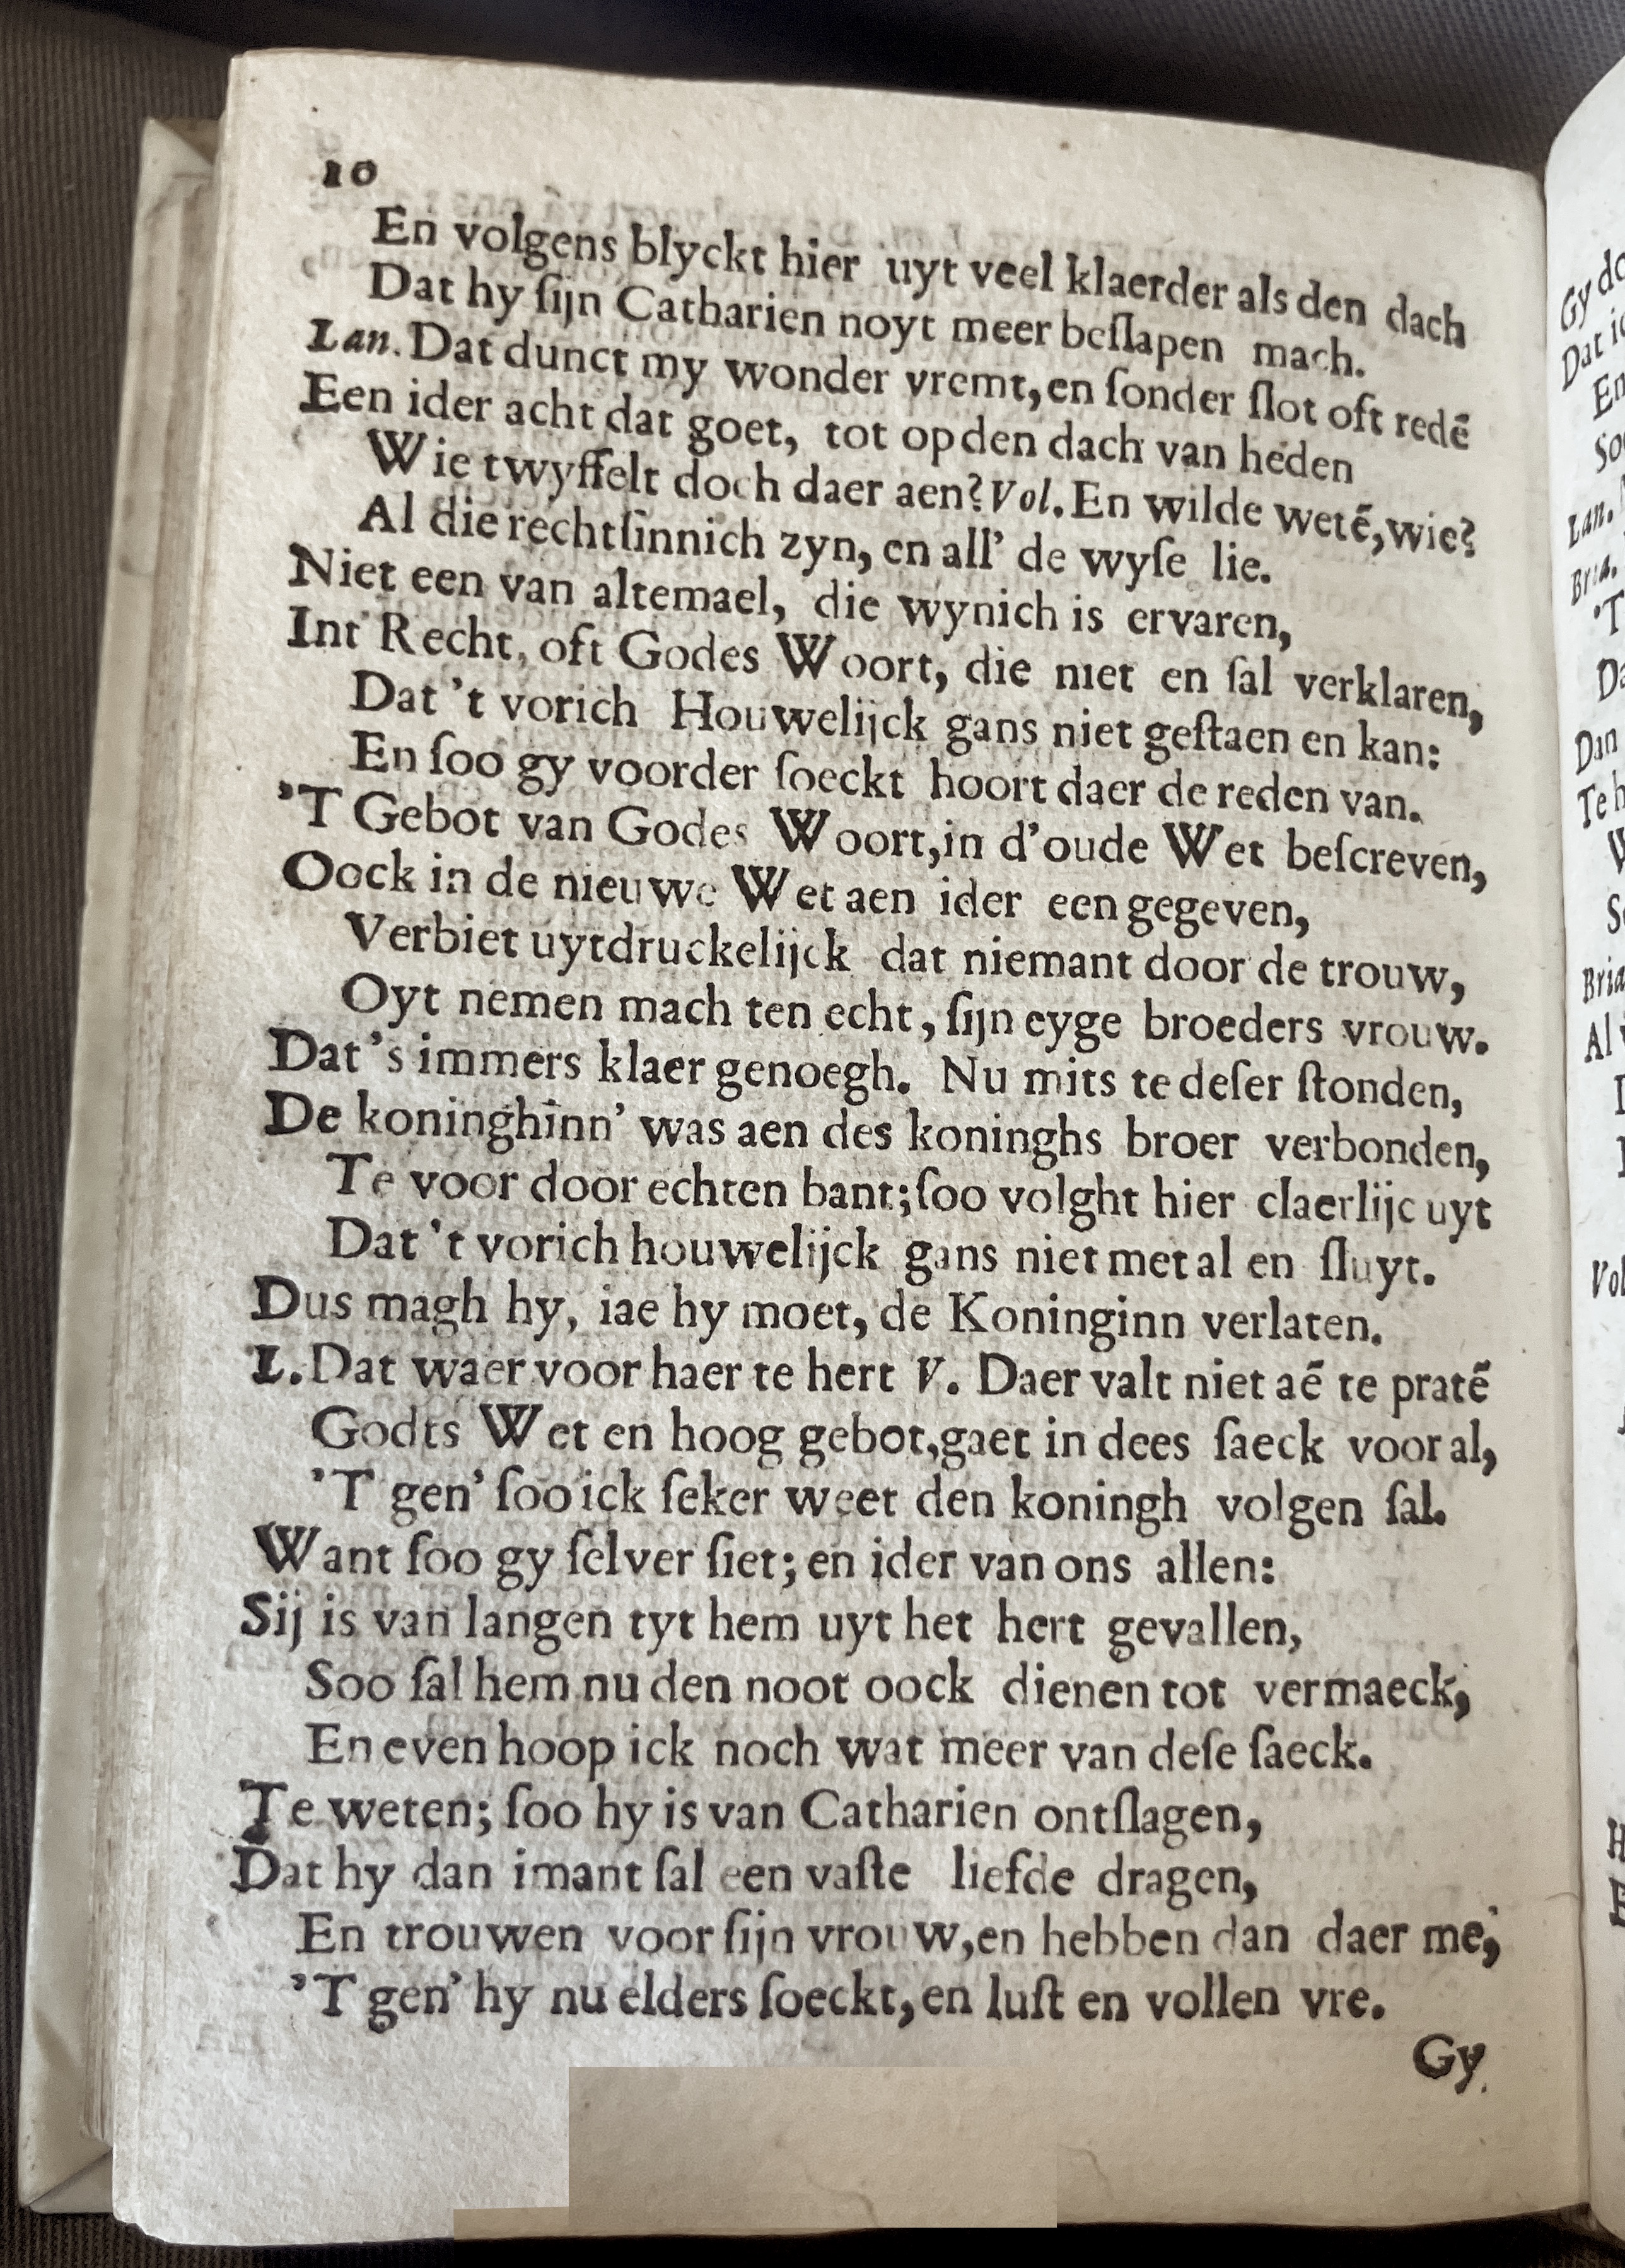 10
En volgens blyckt hier uyt veel klaerder als den dach
Dat hy ſijn Catharien noyt meer beſlapen mach.
Lan. Dat dunct my wonder vremt, en ſonder ſlot oft redē
Een ider acht dat goet, tot op den dach van heden
Wie twyffelt doch daer aen? Vol. En wilde wetē, wie?
Al die rechtſinnich zyn, en all' de wyſe lie.
Niet een van altemael, die wynich is ervaren,
Int Recht, oft Godes Woort, die niet en ſal verklaren,
Dat 't vorich Houwelijck gans niet geſtaen en kan:
En ſoo gy voorder ſoeckt hoort daer de reden van.
'T Gebot van Godes Woort, in d'oude Wet beſcreven,
Oock in de nieuwe Wet aen ider een gegeven,
Verbiet uytdruckelijck dat niemant door de trouw,
Oyt nemen mach ten echt, ſijn eyge broeders vrouw.
Dat's immers klaer genoegh. Nu mits te deſer ſtonden,
De koninghinn' was aen des koninghs broer verbonden,
Te voor door echten bant; ſoo volght hier claerlijc uyt
Dat 't vorich houwelijck gans niet met al en ſluyt.
Dus magh hy, iae hy moet, de Koninginn verlaten.
L. Dat waer voor haer te hert V. Daer valt niet aē te pratē
Godts Wet en hoog gebot, gaet in dees ſaeck voor al,
'T gen' ſoo ick ſeker weet den koningh volgen ſal.
Want ſoo gy ſelver ſiet; en ider van ons allen:
Sij is van langen tyt hem uyt het hert gevallen,
Soo ſal hem nu den noot oock dienen tot vermaeck,
En even hoop ick noch wat meer van deſe ſaeck.
Te weten; ſoo hy is van Catharien ontſlagen,
Dat hy dan imant ſal een vaſte liefde dragen,
En trouwen voor ſijn vrouw, en hebben dan daer me,
'T gen' hy nu elders ſoeckt, en luſt en vollen vre.
Gy
Gy
Dat
En
Lan.
Bria.
'T
Dan
Te
Bria
Al
Vol